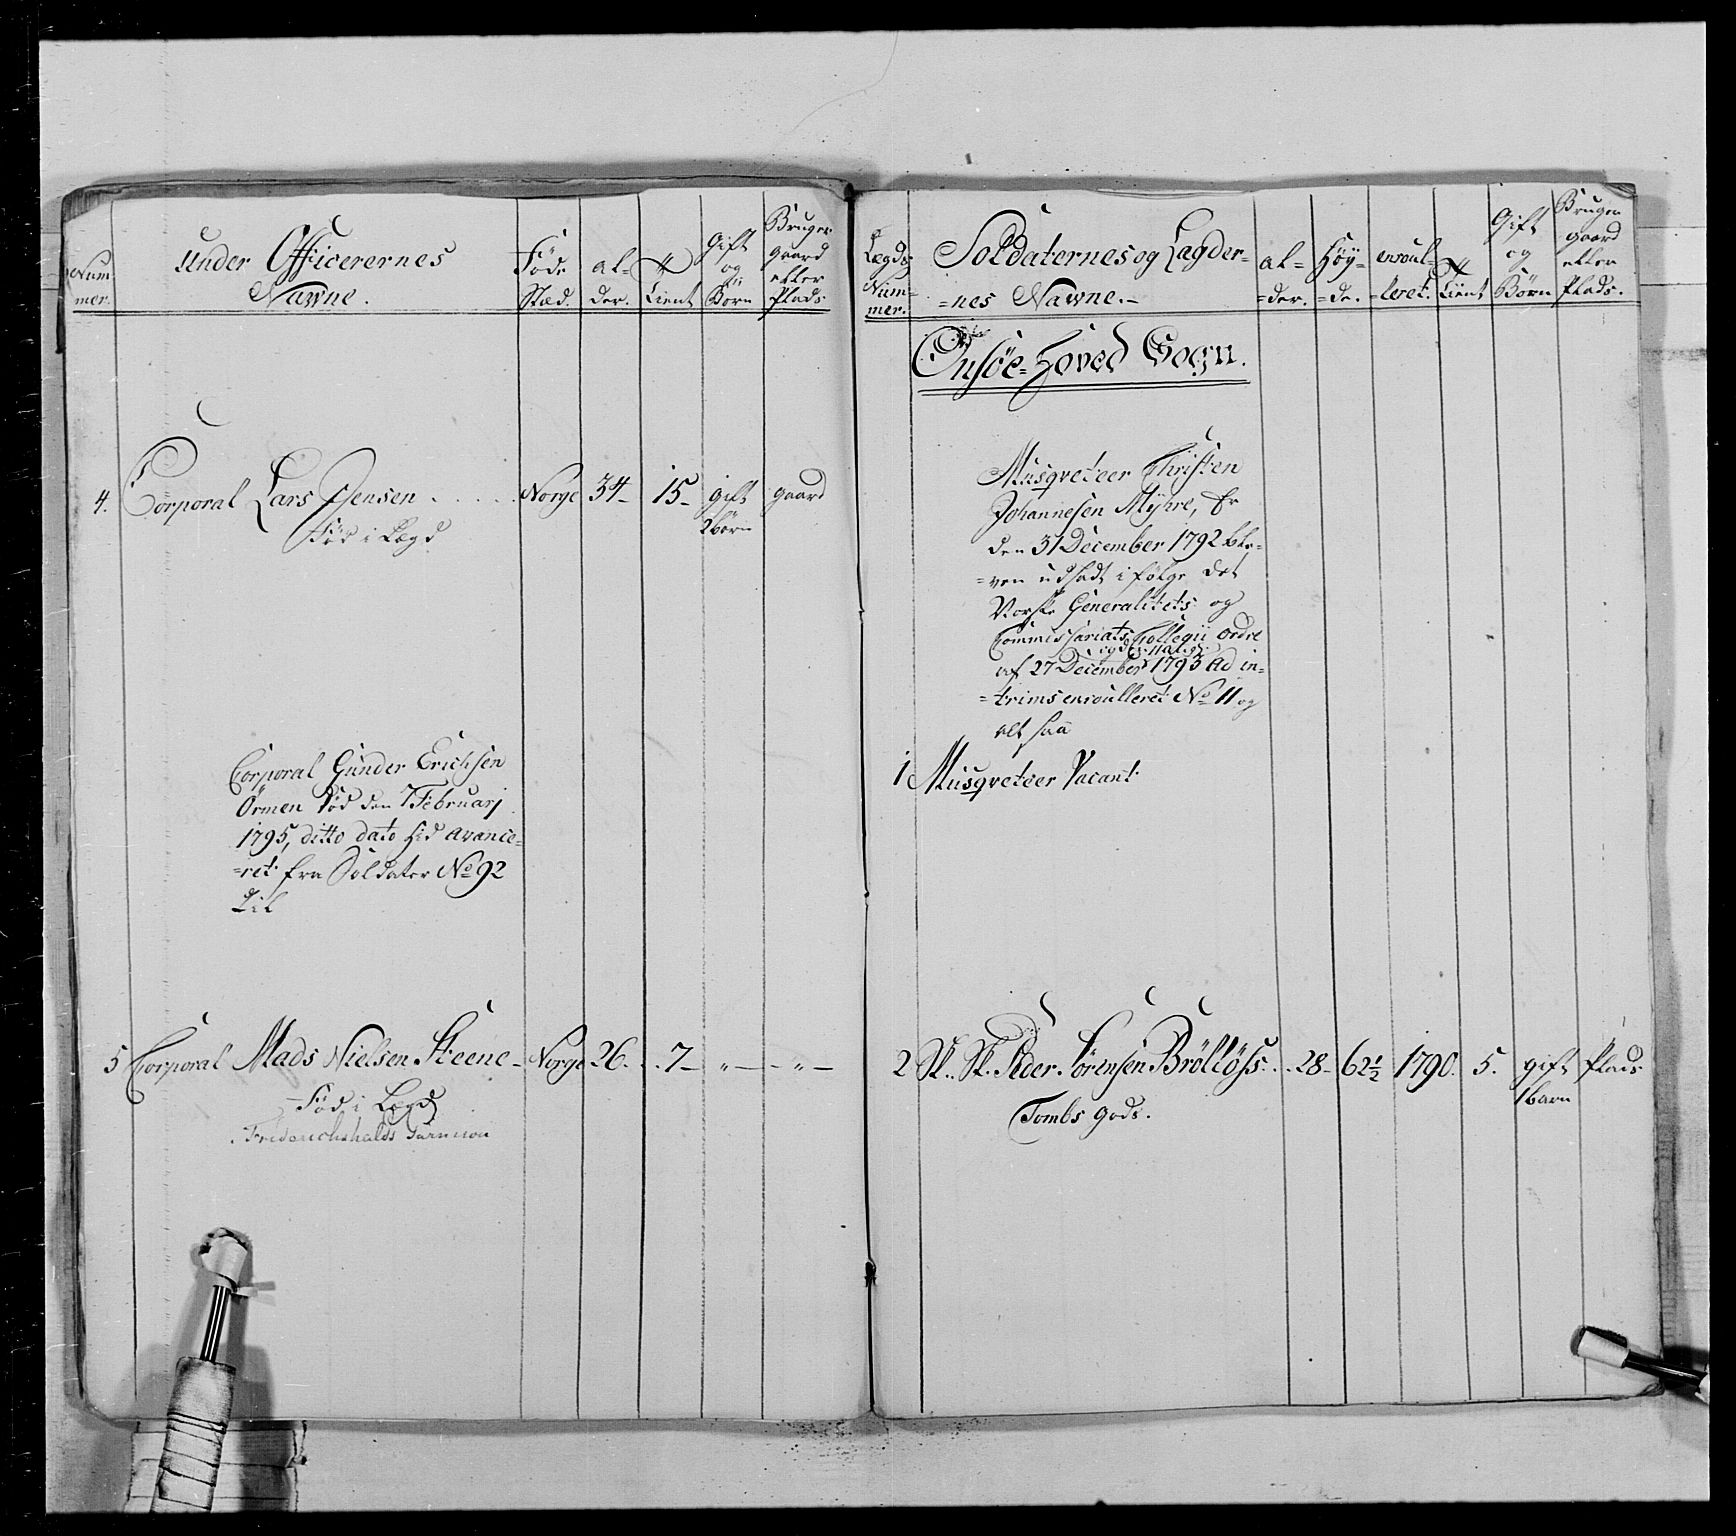 Num
mer.
Under Officerernes
Nawne.
Føde
Stæd.
al-
der.
tient
Gift
og
Børn
Bruger
gaard
eller
Plads
4. Corporal Lars Jensen . . . . . Norge 34- 15- gift gaard
2 børn
Fød i Lægd
Corporal Gunder Erichsen
Örmen Død den 7 Februarj
1795, ditto dato hid avance-
=ret fra Soldater No 92
til
5 Corporal Mads Nielsen Steene- Norge 26. . 7- „ — „ —
Fød i Lægd
Friderichshalds Garnison
Lægds
Num=
mer.
Soldaternes og Lægder=
=nes Nawne.-
al=
=der.
Höy=
=de.
enroul=
=leret.
tient
Gift
og
Börn
Bruger
gaard
eller
Plads.
Onsöe-Hoved Sogn.
Musqveteer Christen
Johannesen Myhre, Er
den 31 December 1792 ble=
=ven udsadt i følge det
Norske Generalitets og
Commissariats Collegii ordre
af 27 December 1793 Ad in=
=trims enroulleret No 11 og
alt saa
1 Musqveteer Vacant.
2 Sk. Sk. Peder Sörensen Bröllöss. . . 28- 62½ 1790. 5. gift Plads
1 barn
Tombs Gods.